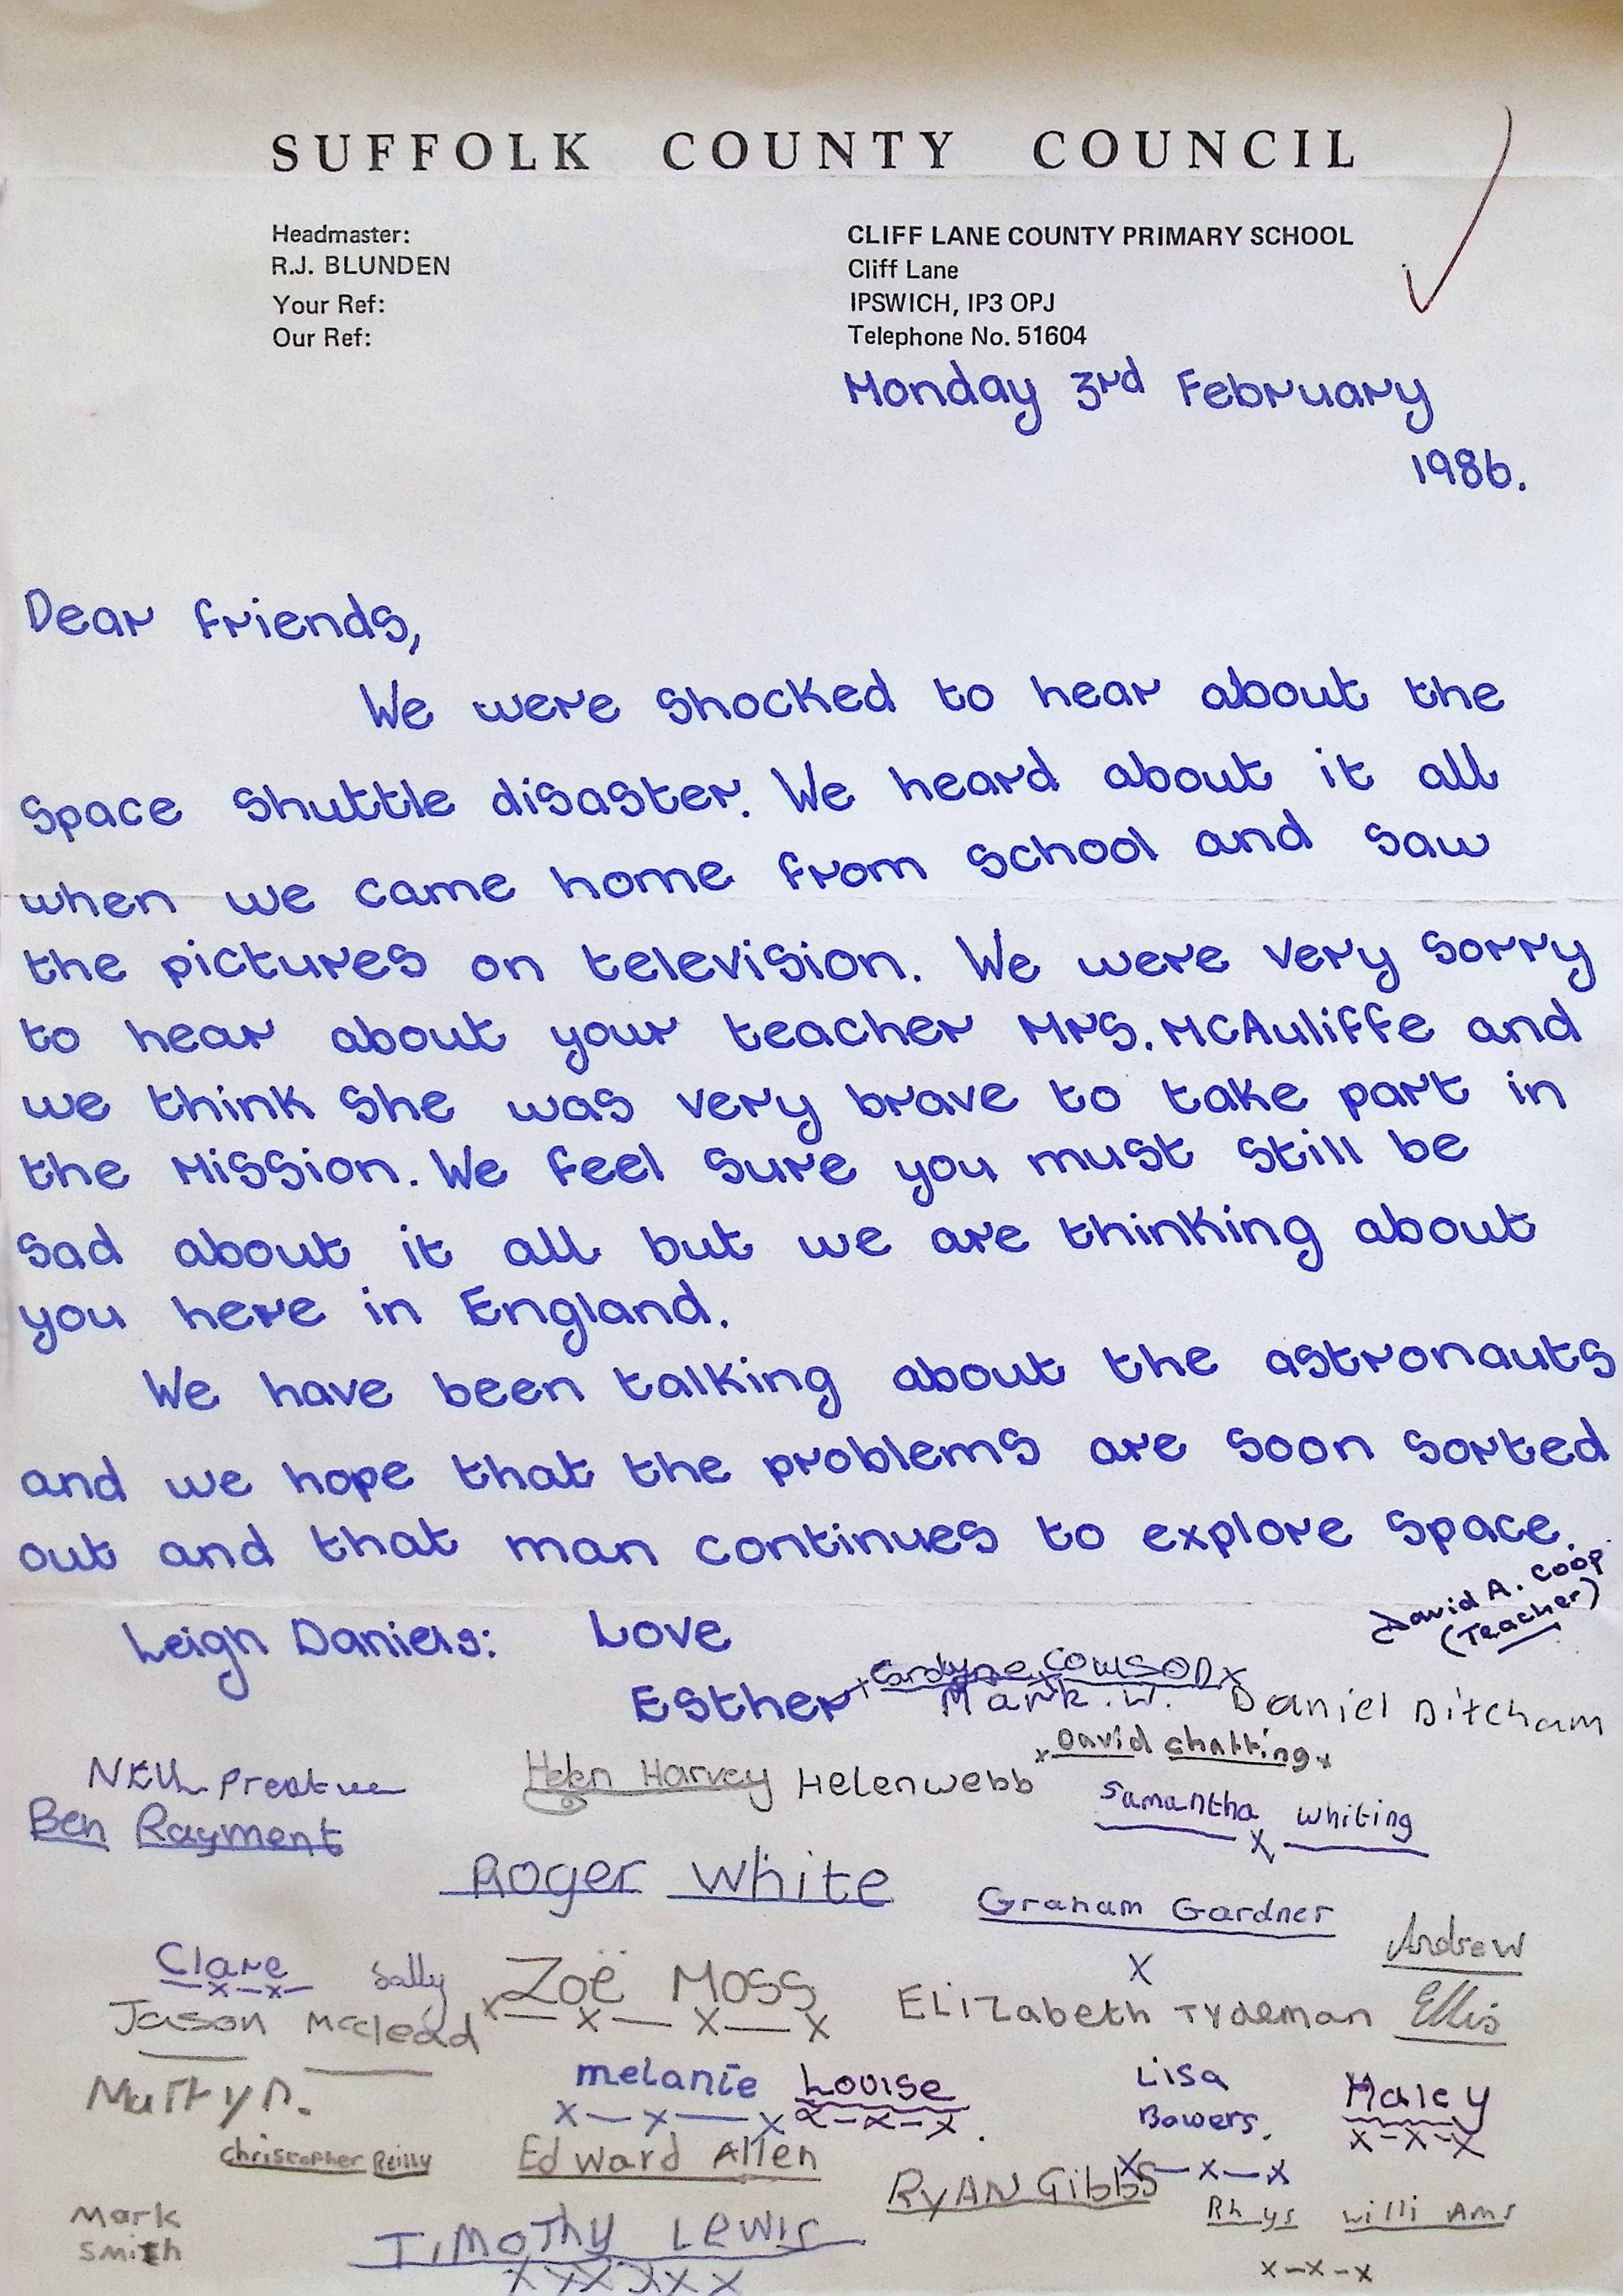 SUFFOLK COUNTY COUNCIL
Headmaster:
R.J. BLUNDEN
Your Ref:
Our Ref:
CLIFF LANE COUNTY PRIMARY SCHOOL
Cliff Lane
IPSWICH, IP3 OPJ
Telephone No. 51604
Monday 3rd February
1986.
Dear friends,
We were shocked to hear about the
space shuttle disaster. We heard about it all
when we came home from school and saw
the pictures on television. We were very sorry
to hear about your teacher Mrs. McAuliffe and
we think she was very brave to take part in
the Mission. We feel sure you must still be
sad about it all but we are thinking about
you here in England.
We have been talking about the astronauts
and we hope that the problems are soon sorted
out and that man continues to explore space.
David A. Coop
(Teacher)
Leigh Daniels: Love
Esther
Mark.W. Daniel Ditcham
David Chatting
Helen Harvey Helen webb
Samantha Whiting
Ben Rayment
Roger White
Graham Gardner
Andrew
Ellis
Clare Sally Zoë Moss
x
Elizabeth Tydeman
Jason Mcclead
x x x x
Martyn.
melanie Louise
x x x x-x-x.
Lisa
Bowers.
x-x-x
Haley
x-x-x
Christopher Reilly Edward Allen
RYAN Gibbs
Rhys williAms
x-x-x
Mark
Smith
TiMoThy Lewis
x x x x x x